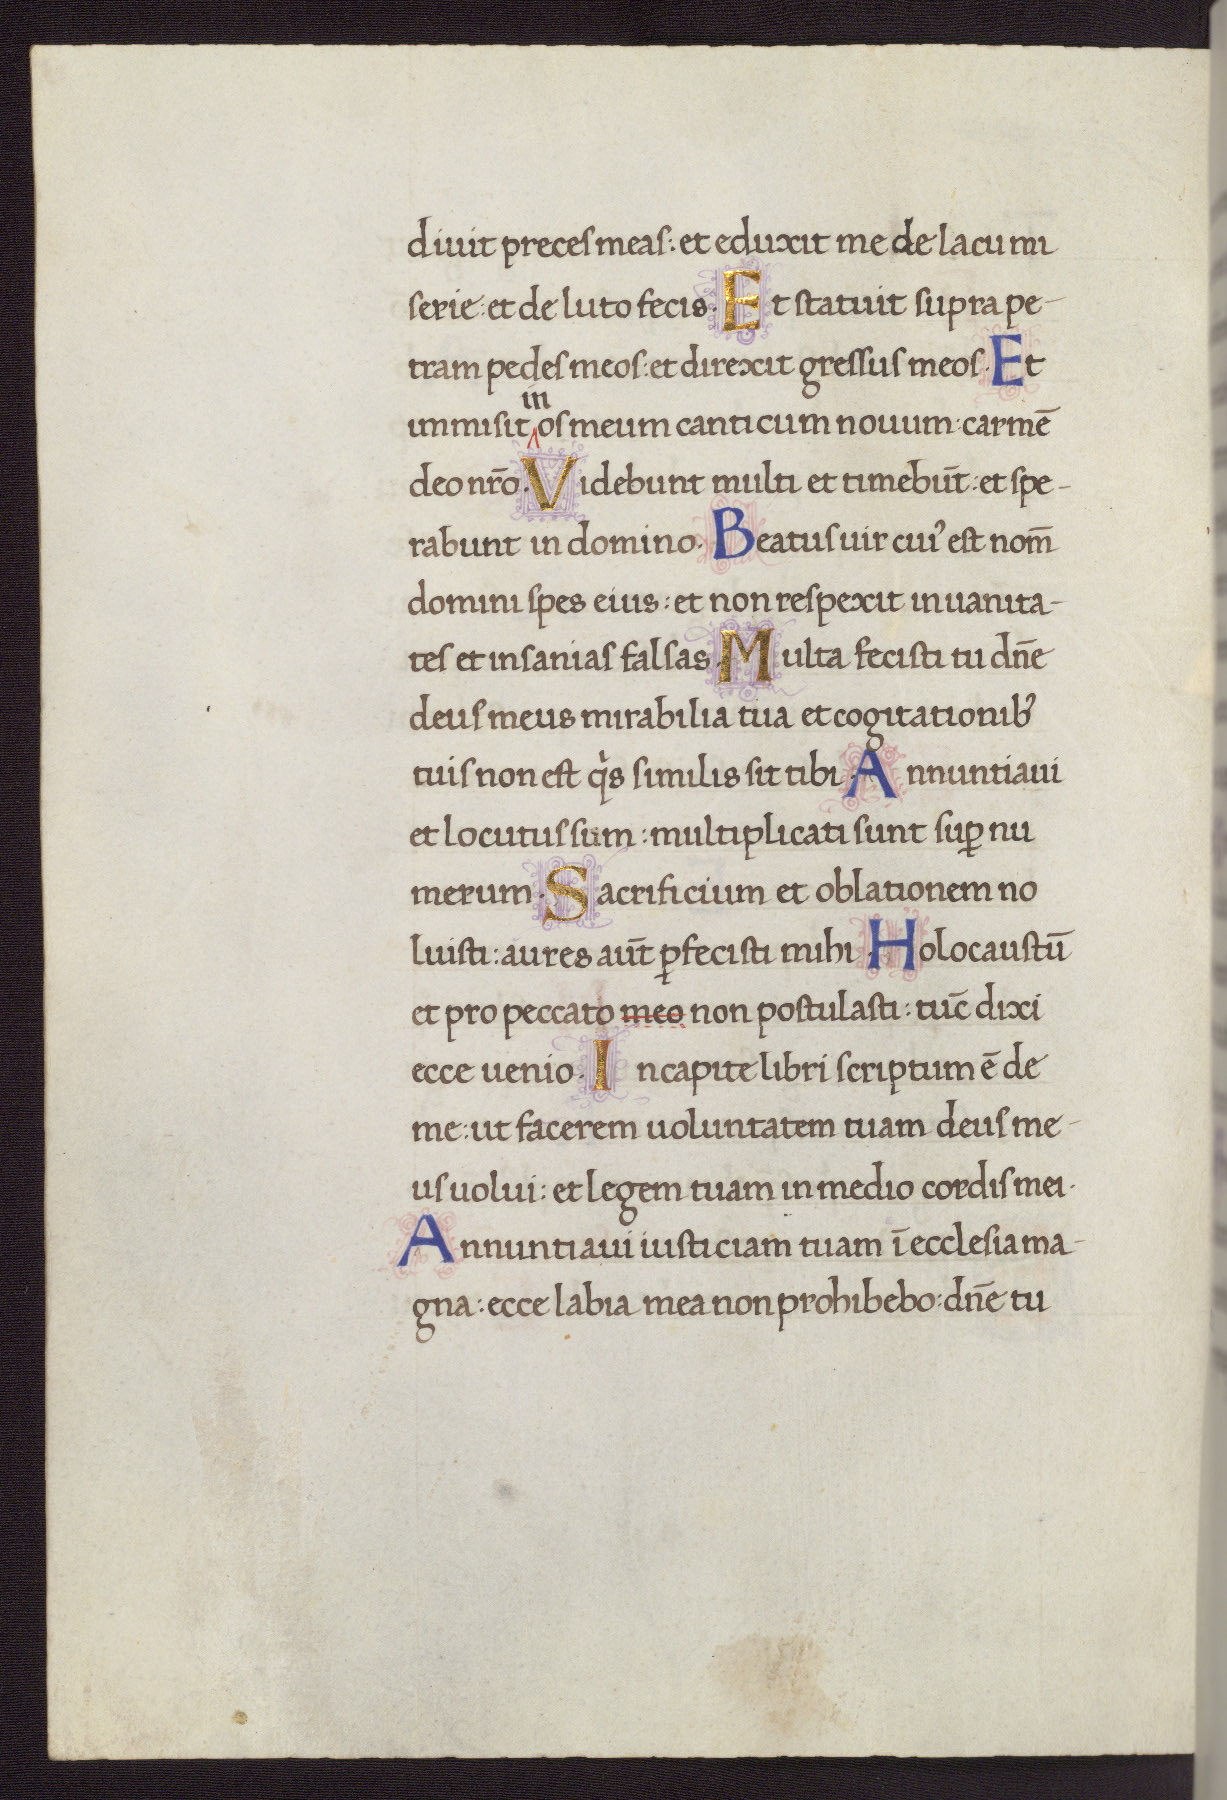 diuit preces meas: et eduxit me de lacu mi
serie: et de luto fecis. Et statuit supra pe-
tram pedes meos: et direxit gressus meos. Et
in
immisit ^ os meum canticum nouum: carmē
deo nr̄o. Videbunt multi et timebūt: et spe-
rabunt in domino. Beatus uir cuiꝰ est nom̄
domini spes eius: et non respexit in uanita-
tes et insanias falsas. Multa fecisti tu dn̄e
deus meus mirabilia tua et cogitationibꝰ
tuis non est qͥs similis sit tibi. Annuntiaui
et locutus sum: multiplicati sunt sup̱ nu
merum. Sacrificium et oblationem no
luisti: aures aūt ꝑfecisti mihi. Holocaustū
et pro peccato meo non postulasti: tuc̄ dixi
ecce uenio. In capite libri scriptum ē de
me: ut facerem uoluntatem tuam deus me-
us uolui: et legem tuam in medio cordis mei.
Annuntiaui iusticiam tuam ī ecclesia ma-
gna: ecce labia mea non prohibebo: dn̄e tu